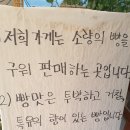 저희가게는 소량의 빵을
구워 판매하는 곳입니다
2) 빵맛은 투박하고 거칠
특유의 향이 있는 빵입니다